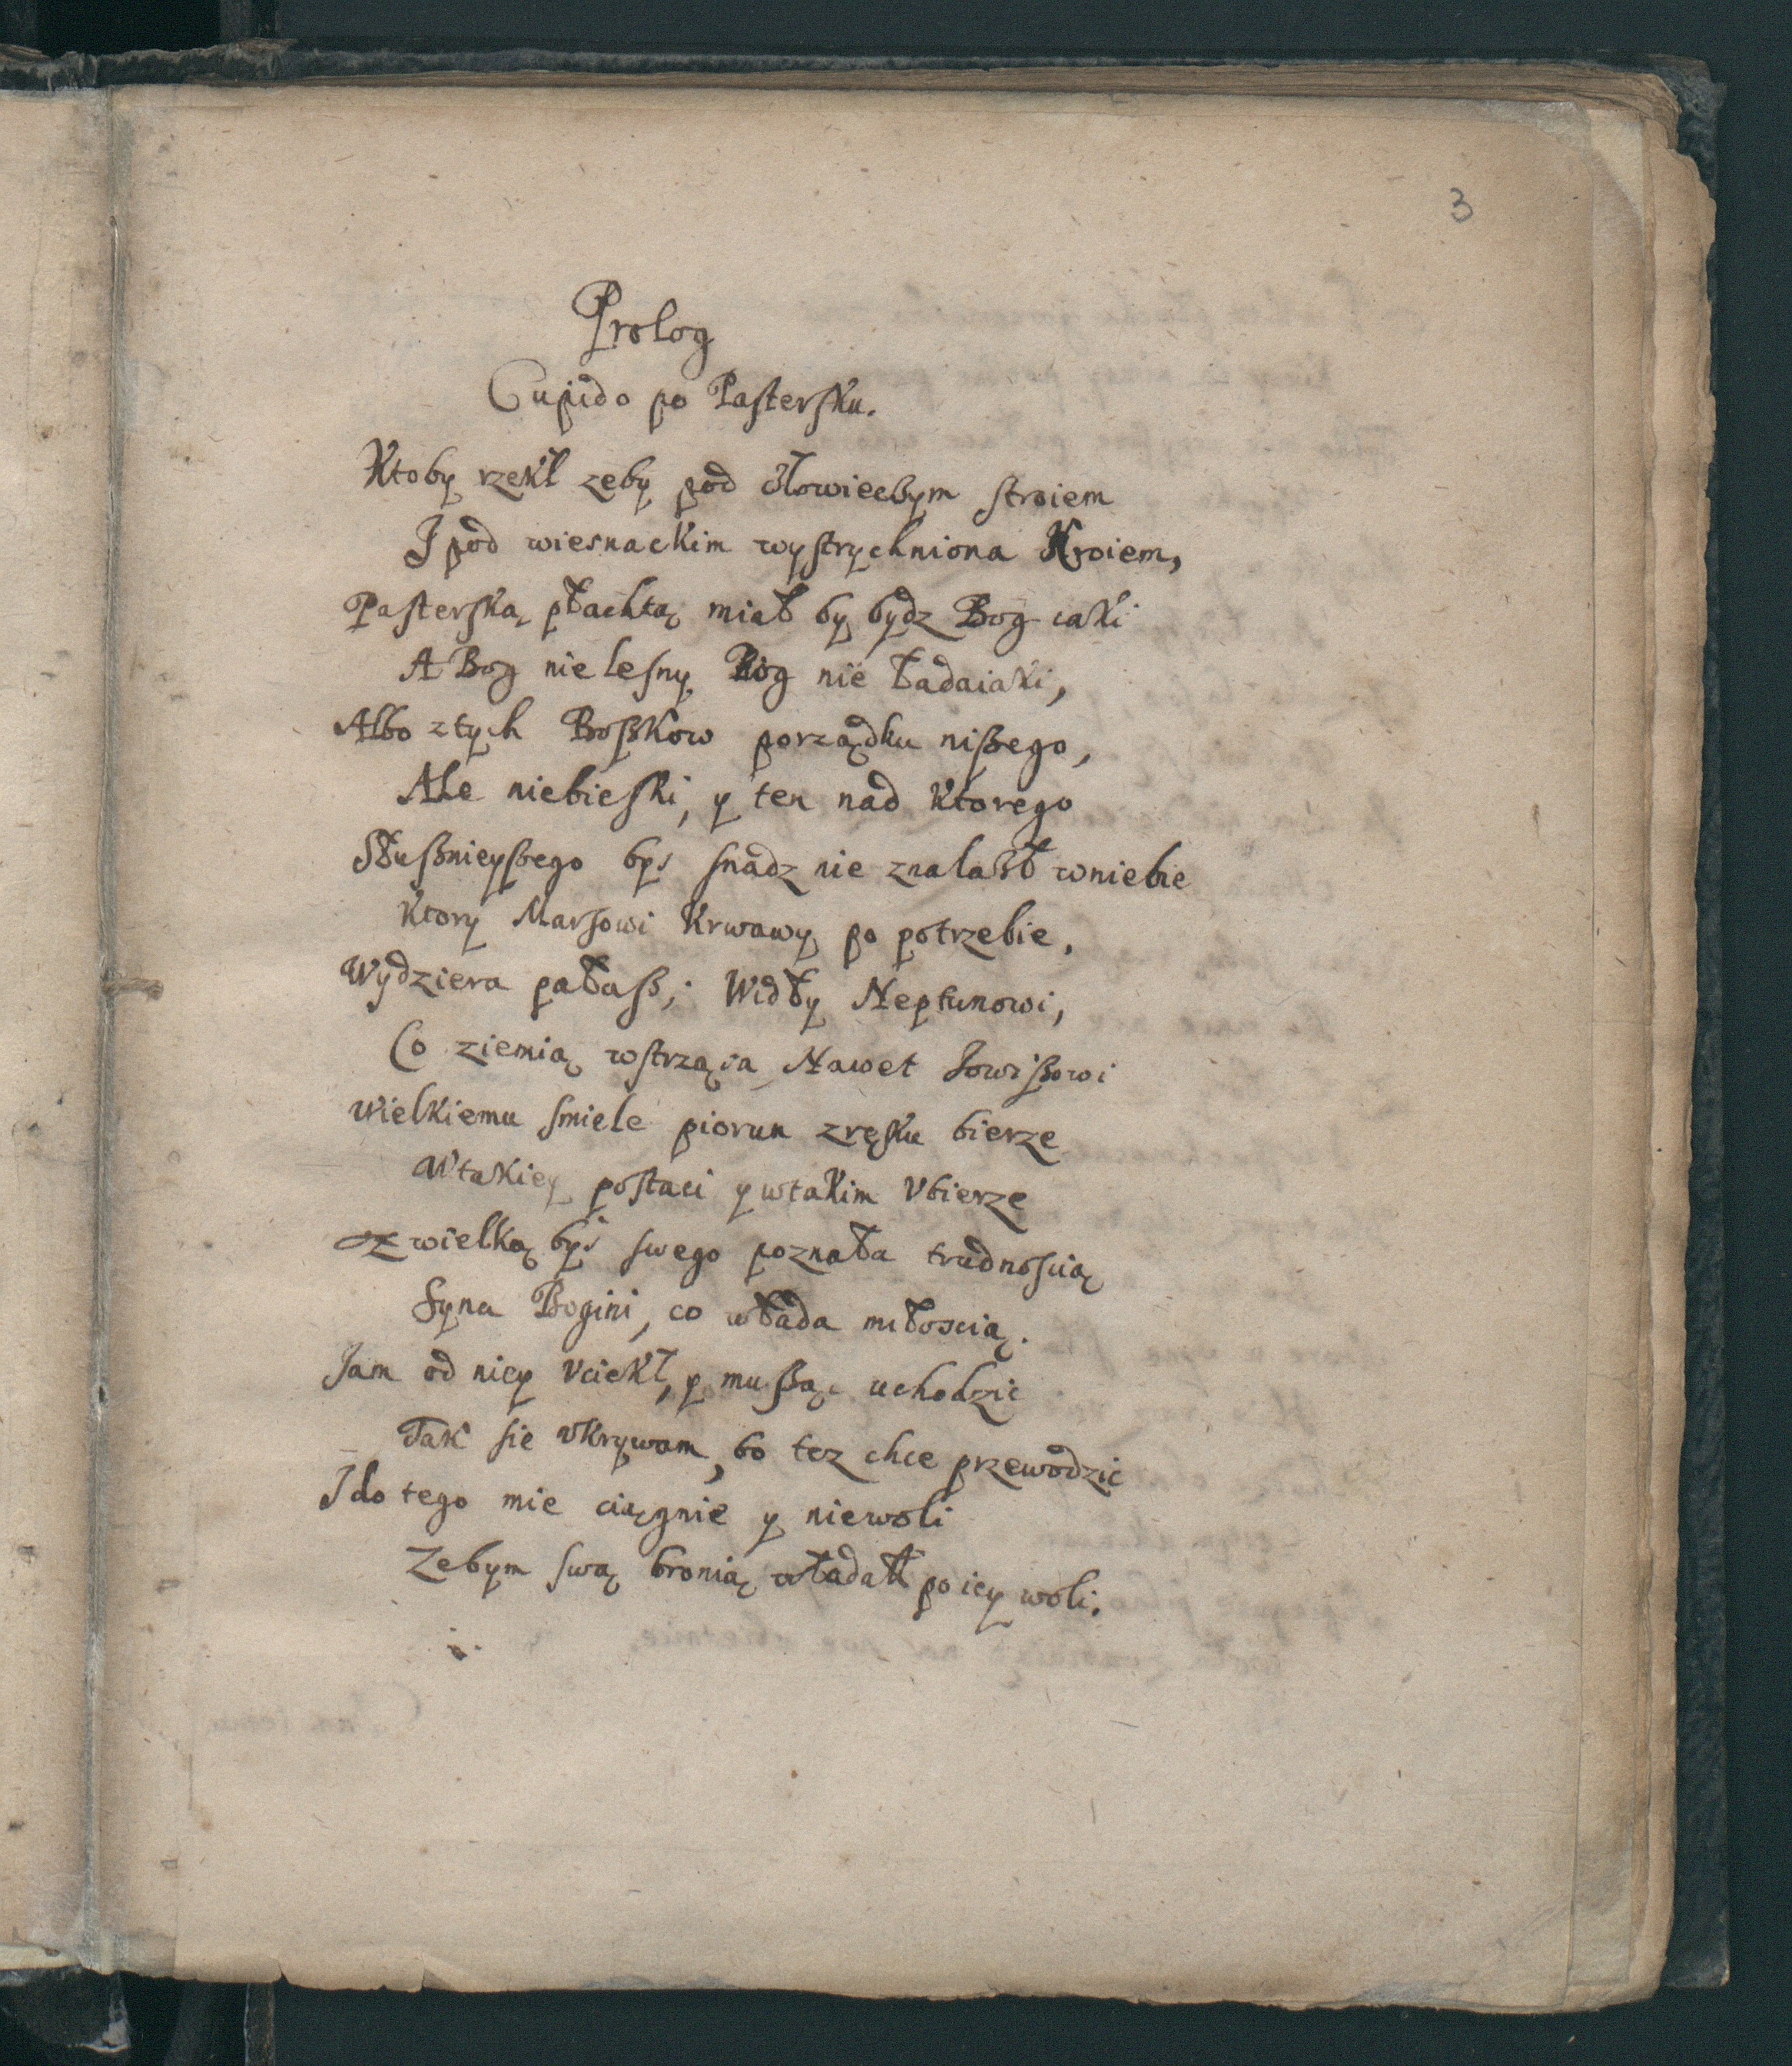 3
Prolog
Cupido po Pasterſku.
Ktoby rzekł zeby pod człowieczym stroiem
I pod wiesnackim wystrychniona Kroiem,
Paſterſką płachtą miał by bydz Bog iaki
A Bog nie leſny Bog nie ładaiaki,
Albo z tych Boßkow porządku nißego,
Ale niebieſki, y ten nad ktorego
Słußnieyßego bys ſnadz nie znalazł w niebie
Ktory Marſowi Krwawy po potrzebie,
Wydziera pałaß; Widły Neptunowi,
Co ziemią wſtrząsa, Nawet Jowißowi
Wielkiemu ſmiele piorun z ręku bierze
W takiey poſtaci y w takim Vbierze
z wielką bys ſwego poznała trudnoſcią
Syna Bogini, co włada miłoscią.
Jam od niey Vciekł, y mußąc uchodzic
Tak ſie Vkrywam, bo tez chce przewodzic
I do tego mie ciągnie y niewoli
Zebym ſwą bronią władał po iey woli.